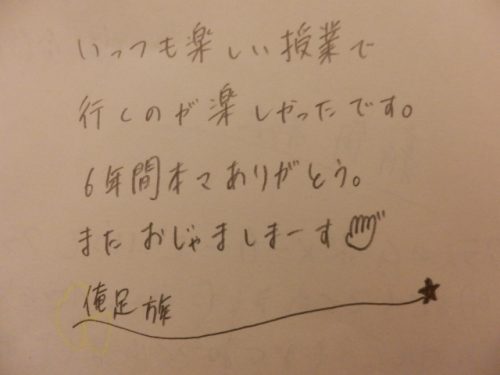 いっつも楽しい授業で
行くのが楽しかったです。
6年間本マありがとう。
またおじゃましまーす
俺足族